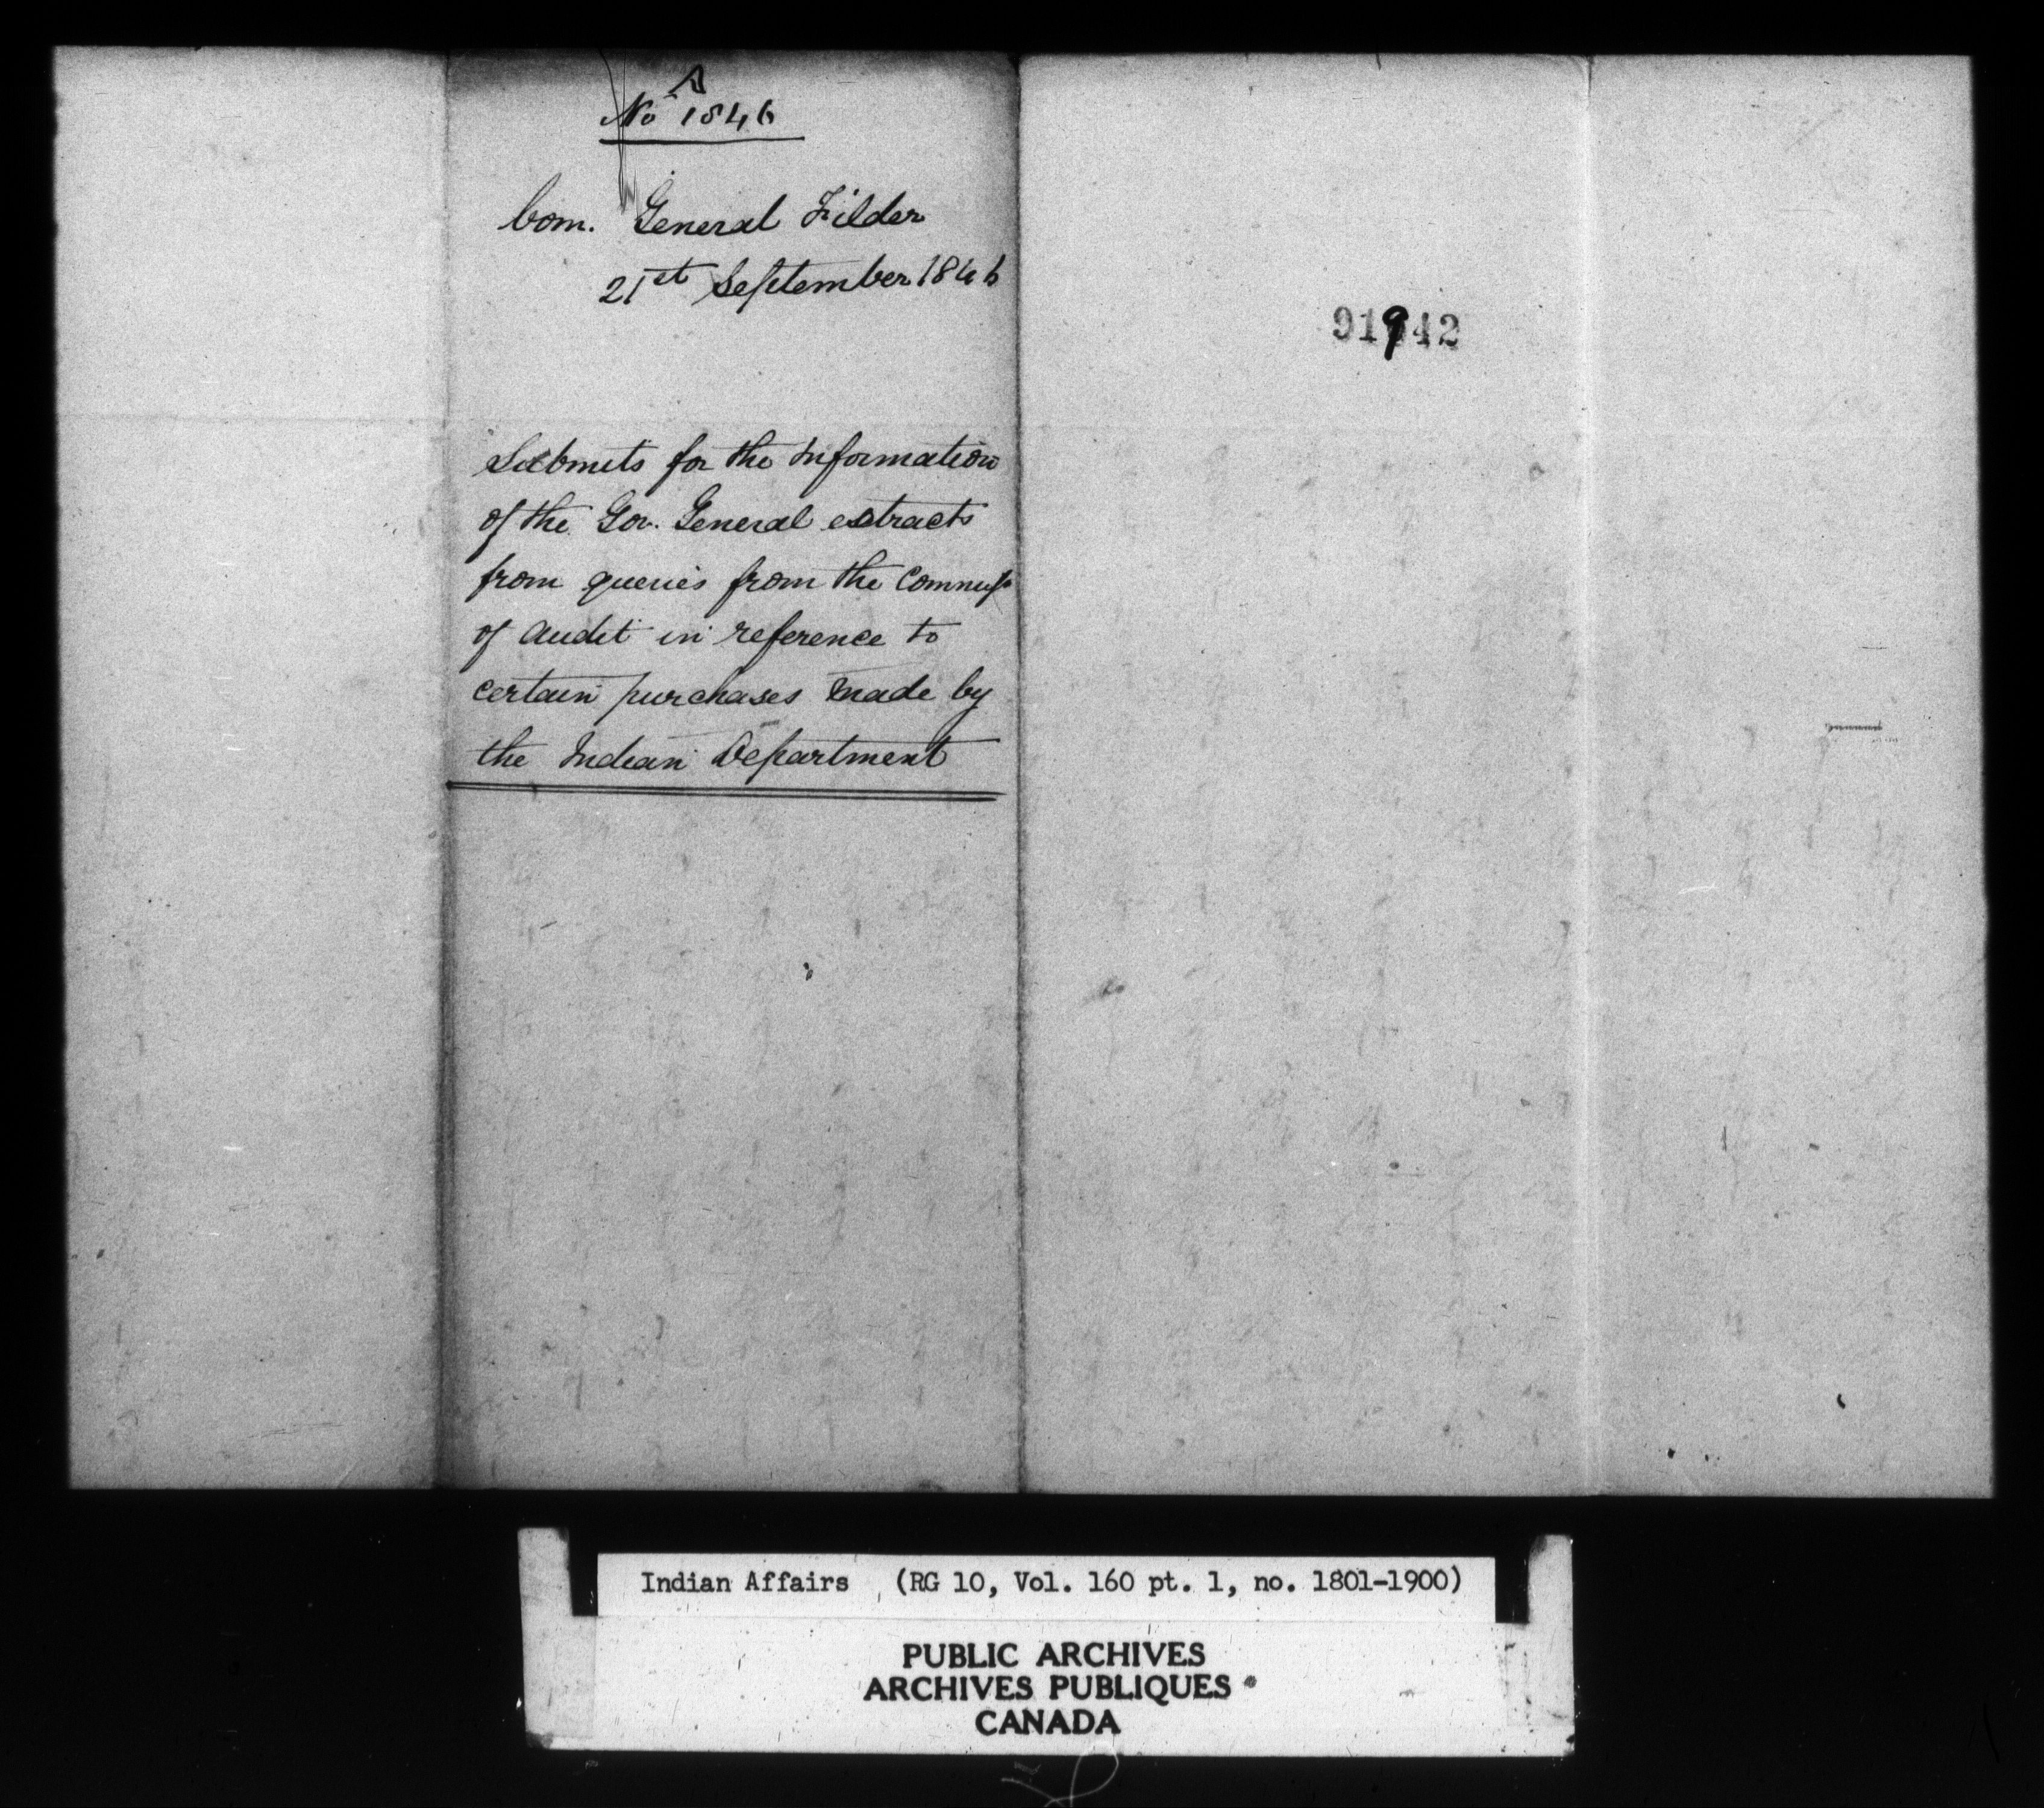 A
No 1846
Com. General Filder
21st September 1846
Submits for the Information
of the Gov. General extracts
from queries from the Commissrs
of Audit in reference to
certain purchases made by
the Indian Department
91942
Indian Affairs (RG 10, Vol. 160 pt. 1, no. 1801-1900)
PUBLIC ARCHIVES
ARCHIVES PUBLIQUES
CANADA